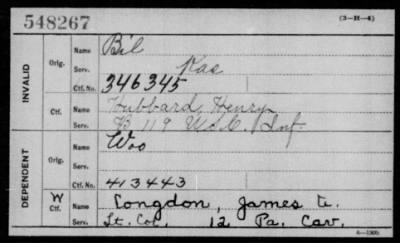 548267 (3-H-4)
INVALID
Orig.
Name Bil
Serv. Kas
Ctf. No. 346345
Ctf.
Name Hubbard, Henry
Serv. B 119 U.S.C. Inf.
DEPENDENT
Orig.
Name Woo
Serv.
Ctf. No. 413443
W
Ctf.
Name Congdon, James
Serv. Lt. Col. 12 Pa. Cav.